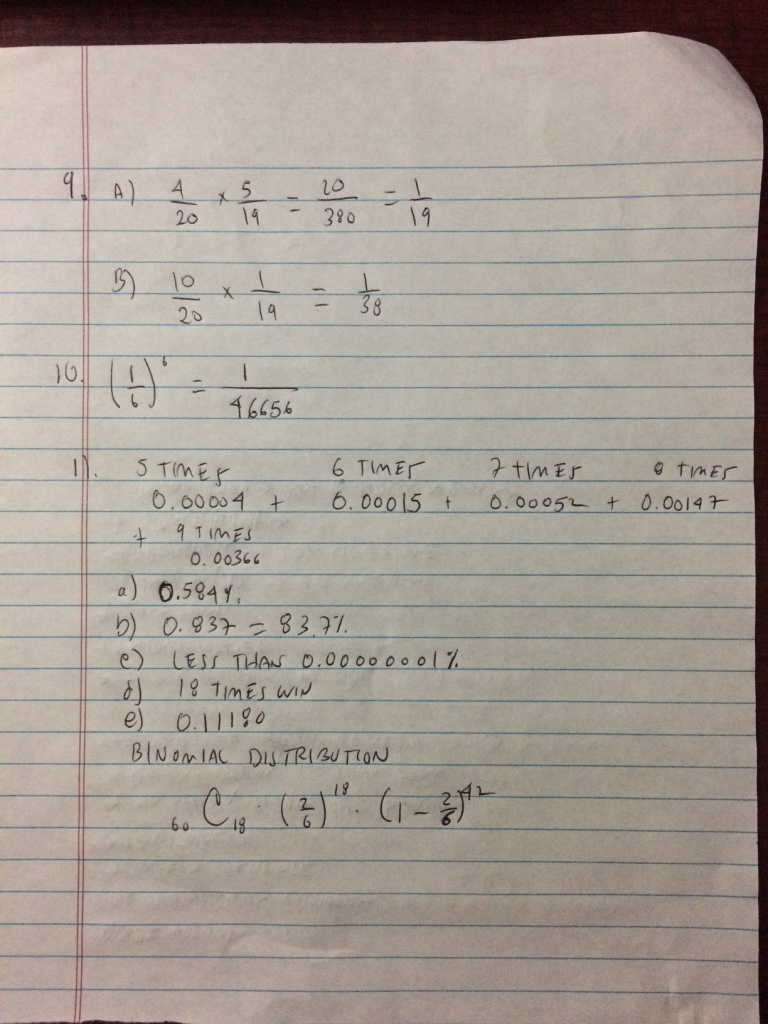 9. A) 4/20 x 5/19 = 20/380 = 1/19
B) 10/20 x 1/19 = 1/38
10. (1/6)^6 = 1/46656
11. 5 TIMES 6 TIMES 7 TIMES 8 TIMES
0.00004 + 0.00015 + 0.00052 + 0.00147
+ 9 TIMES
0.00366
a) 0.584%
b) 0.837 = 83.7%
c) LESS THAN 0.00000001%
d) 18 TIMES WIN
e) 0.11180
BINOMIAL DISTRIBUTION
₆₀C₁₈ · (2/6)^18 · (1 - 2/6)^42